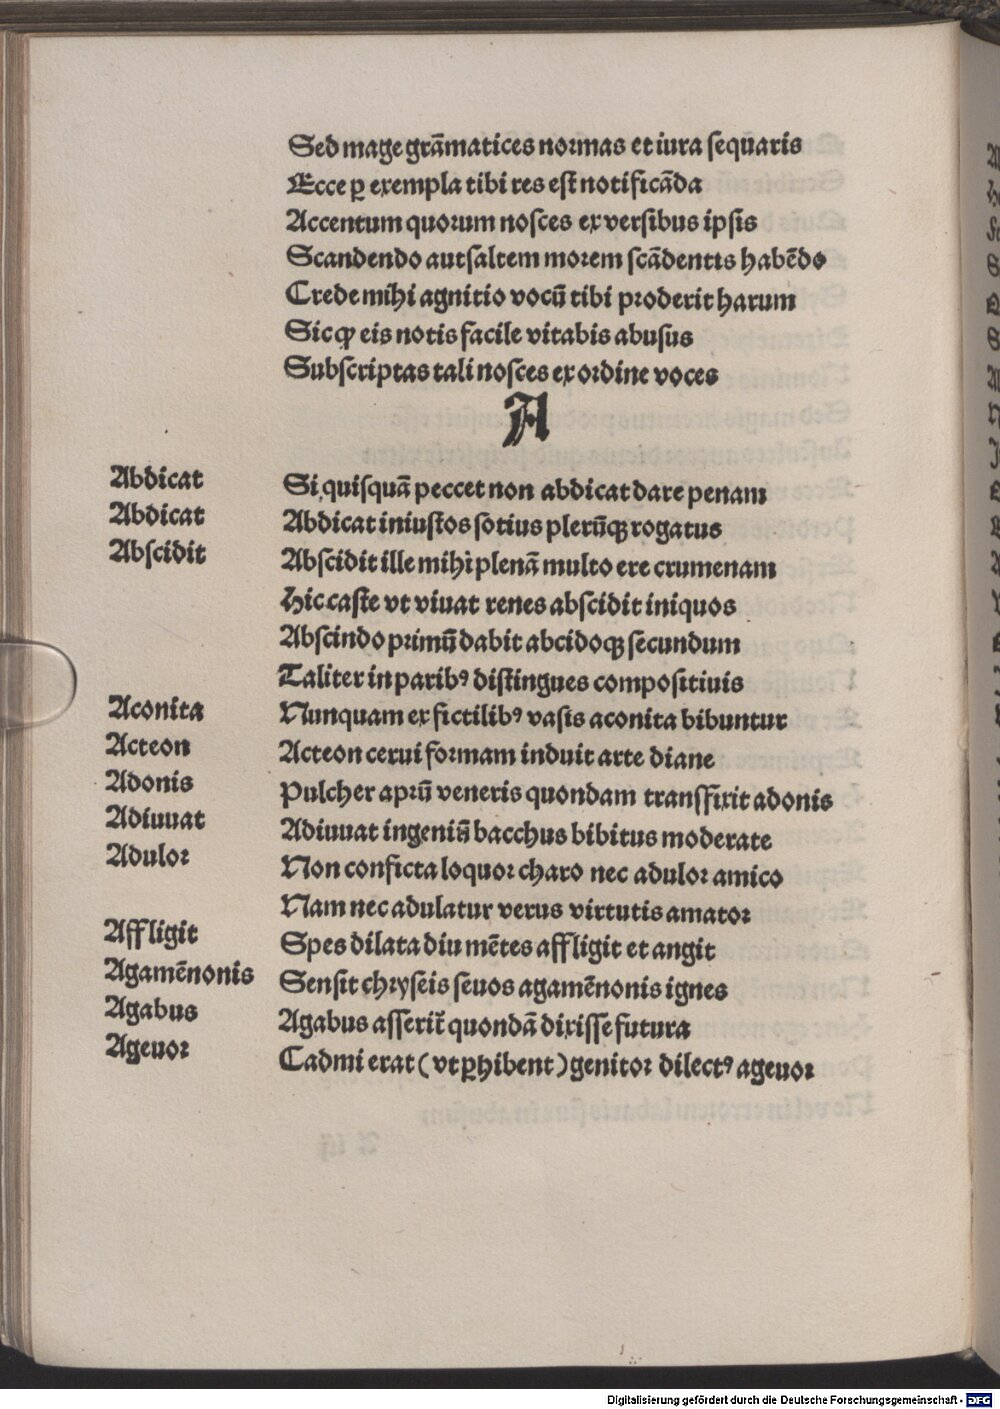 Sed mage grāmatices normas et iura sequaris
Ecce ꝑ exempla tibi res est notificāda
Accentum quorum nosces ex versibus ipsis
Scandendo aut saltem morem scādentis habēdo
Crede mihi agnitio vocū tibi proderit harum
Sicꝙ eis notis facile vitabis abusus
Subscriptas tali nosces ex ordine voces
A
Abdicat Si quisquā peccet non abdicat dare penam
Abdicat Abdicat iniustos sotius plerūqꝫ rogatus
Abscidit Abscidit ille mihi plenā multo ere crumenam
Hic caste vt viuat renes abscidit iniquos
Abscindo primū dabit abcidoqꝫ secundum
Taliter in paribꝰ distingues compositiuis
Aconita Nunquam ex fictilibꝰ vasis aconita bibuntur
Acteon Acteon cerui formam induit arte diane
Adonis Pulcher aprū veneris quondam transfixit adonis
Adiuuat Adiuuat ingeniū bacchus bibitus moderate
Adulor Non conficta loquor charo nec adulor amico
Nam nec adulatur verus virtutis amator
Affligit Spes dilata diu mētes affligit et angit
Agamēnonis Sensit chryseis seuos agamēnonis ignes
Agabus Agabus asserit̄ quondā dixisse futura
Agenor Cadmi erat (vt ꝑhibent) genitor dilectꝰ agenor
Digitalisierung gefördert durch die Deutsche Forschungsgemeinschaft - DFG